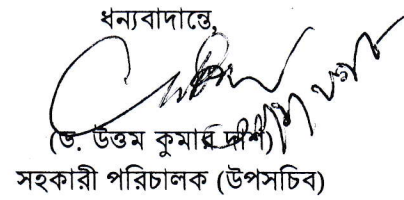 ধন্যবাদান্তে,
(ড. উত্তম কুমার দাশ)
সহকারী পরিচালক (উপসচিব)